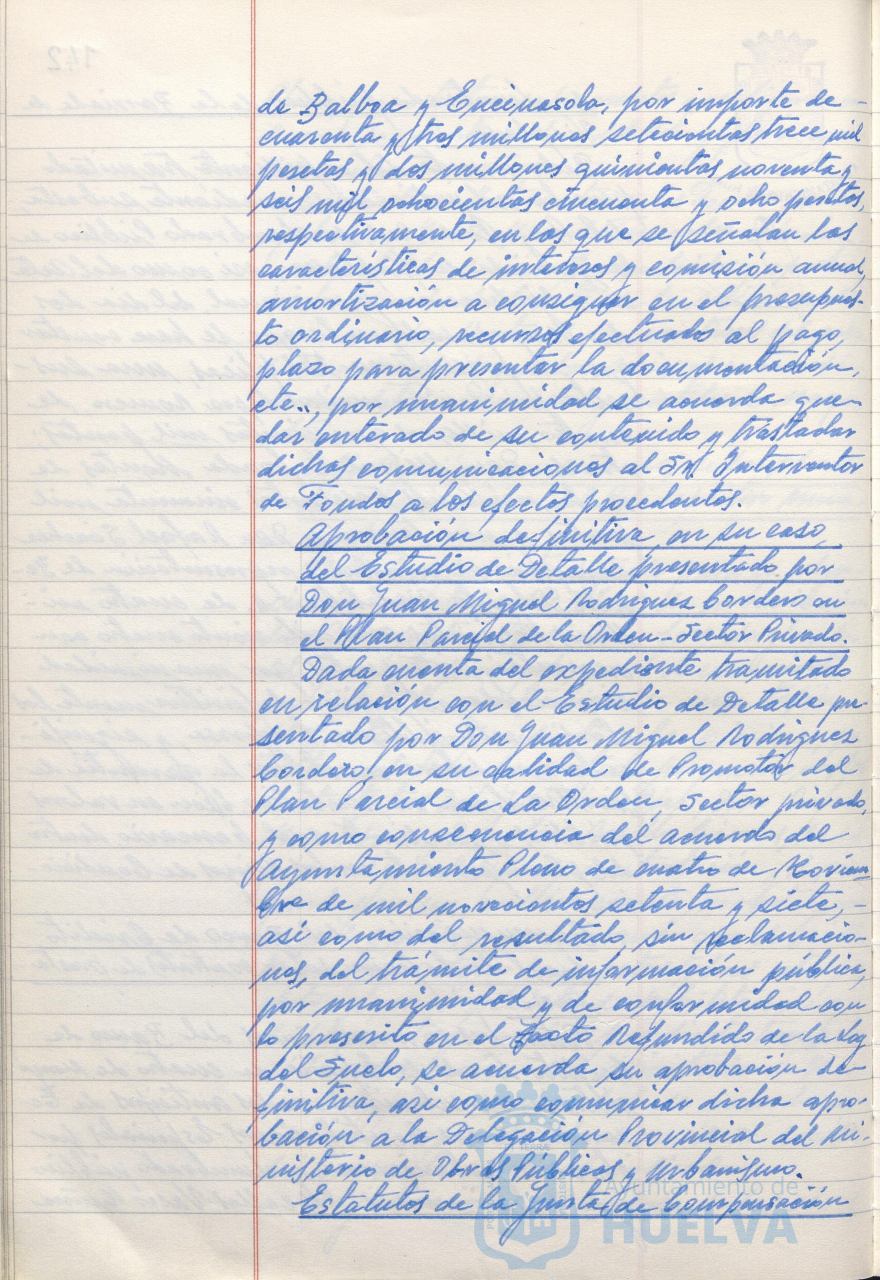 de Balboa y Encinasola, por importe de -
cuarenta y tres millones setecientas trece mil
pesetas y dos millones quinientas noventa y
seis mil ochocientas cincuenta y ocho pesetas,
respectivamente, en los que se señalan las
características de intereses y comisión anual,
amortización a consignar en el presupues-
to ordinario, recursos afectados al pago,
plazo para presentar la documentación,
etc.., por unanimidad se acuerda que-
dar enterado de su contenido y trasladar
dichas comunicaciones al Sr. Interventor
de Fondos a los efectos procedentes.
Aprobación definitiva, en su caso,
del Estudio de Detalle presentado por
Don Juan Miguel Rodriguez Cordero en
el Plan Parcial de la Orden-Sector Privado.
Dada cuenta del expediente tramitado
en relación con el Estudio de Detalle pre-
sentado por Don Juan Miguel Rodriguez
Cordero, en su calidad de Promotor del
Plan Parcial de La Orden, Sector privado,
y como consecuencia del acuerdo del
Ayuntamiento Pleno de cuatro de Noviem-
bre de mil novecientos setenta y siete, -
así como del resultado, sin reclamacio-
nes, del trámite de información pública,
por unanimidad y de conformidad con
lo prescrito en el Texto Refundido de la Ley
del Suelo, se acuerda su aprobación de-
finitiva, así como comunicar dicha apro-
bación a la Delegación Provincial del Mi-
nisterio de Obras Públicas y Urbanismo.
Estatutos de la Junta de Compensación
Ayuntamiento de
HUELVA